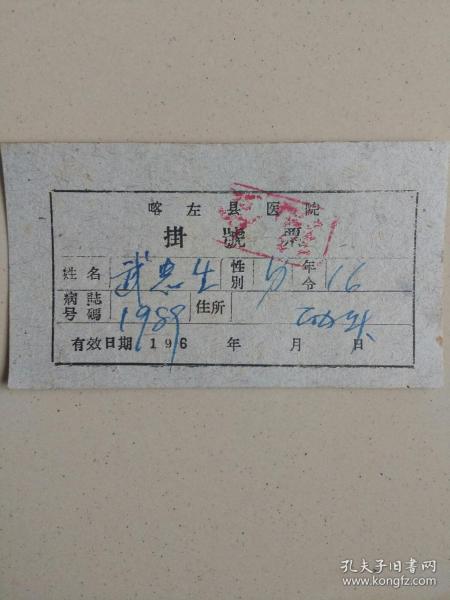 喀左县医院
掛號票
姓名 武忠生 性別 年令 16
病誌号碼 1989 住所
有效日期196 年 月 日
孔夫子旧书网
www.kongfz.com